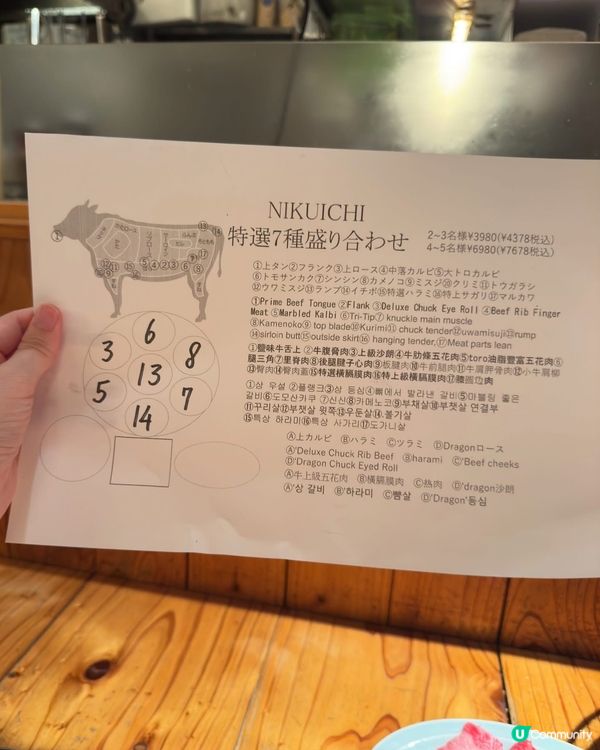 NIKUICHI
特選7種盛り合わせ
2~3名様¥3980(¥4378税込)
4~5名様¥6980(¥7678税込)
①上タン②フランク③上ロース④中落カルビ⑤大トロカルビ
⑥トモサンカク⑦シンシン⑧カメノコ⑨ミスジ⑩クリミ⑪トウガラシ
⑫ウワミスジ⑬ランプ⑭イチボ⑮特選ハラミ⑯特上サガリ⑰マルカワ
①Prime Beef Tongue ②Flank ③Deluxe Chuck Eye Roll ④Beef Rib Finger
Meat ⑤Marbled Kalbi ⑥Tri-Tip⑦ knuckle main muscle
⑧Kamenoko⑨top blade⑩Kurimi⑪ chuck tender⑫uwamisuji⑬rump
⑭sirloin butt⑮outside skirt⑯ hanging tender,⑰Meat parts lean
①鹽味牛舌上 ②牛腹脅肉③上級沙朗④牛肋條五花肉⑤toro油脂豐富五花肉⑥
腿三角⑦里脊肉⑧後腿腱子心肉⑨板腱肉⑩牛前腿肉⑪牛肩胛骨肉⑫小牛肩柳
⑬臀肉⑭臀肉蓋⑮特選橫膈膜肉⑯特上級橫膈膜肉⑰膝圓肉
①상 우설 ②플랭크③상 등심④뼈에서 발라낸 갈비⑤마블링 좋은
갈비⑥도모산카쿠 ⑦신신⑧카메노코⑨부채살⑩부챗살 연결부
⑪꾸리살⑫부챗살 윗쪽⑬우둔살⑭볼기살
⑮특상 하라미⑯특상 사가리⑰도가니살
Ⓐ上カルビ Ⓑハラミ Ⓒツラミ ⒹDragonロース
Ⓐ'Deluxe Chuck Rib Beef Ⓑharami Ⓒ'Beef cheeks
Ⓓ'Dragon Chuck Eyed Roll
Ⓐ牛上級五花肉 Ⓑ橫膈膜肉 Ⓒ热肉 Ⓓ'dragon沙朗
Ⓐ'상 갈비 Ⓑ'하라미 Ⓒ뺨살 Ⓓ'Dragon'등심
6
3
8
13
5
7
14
U Community